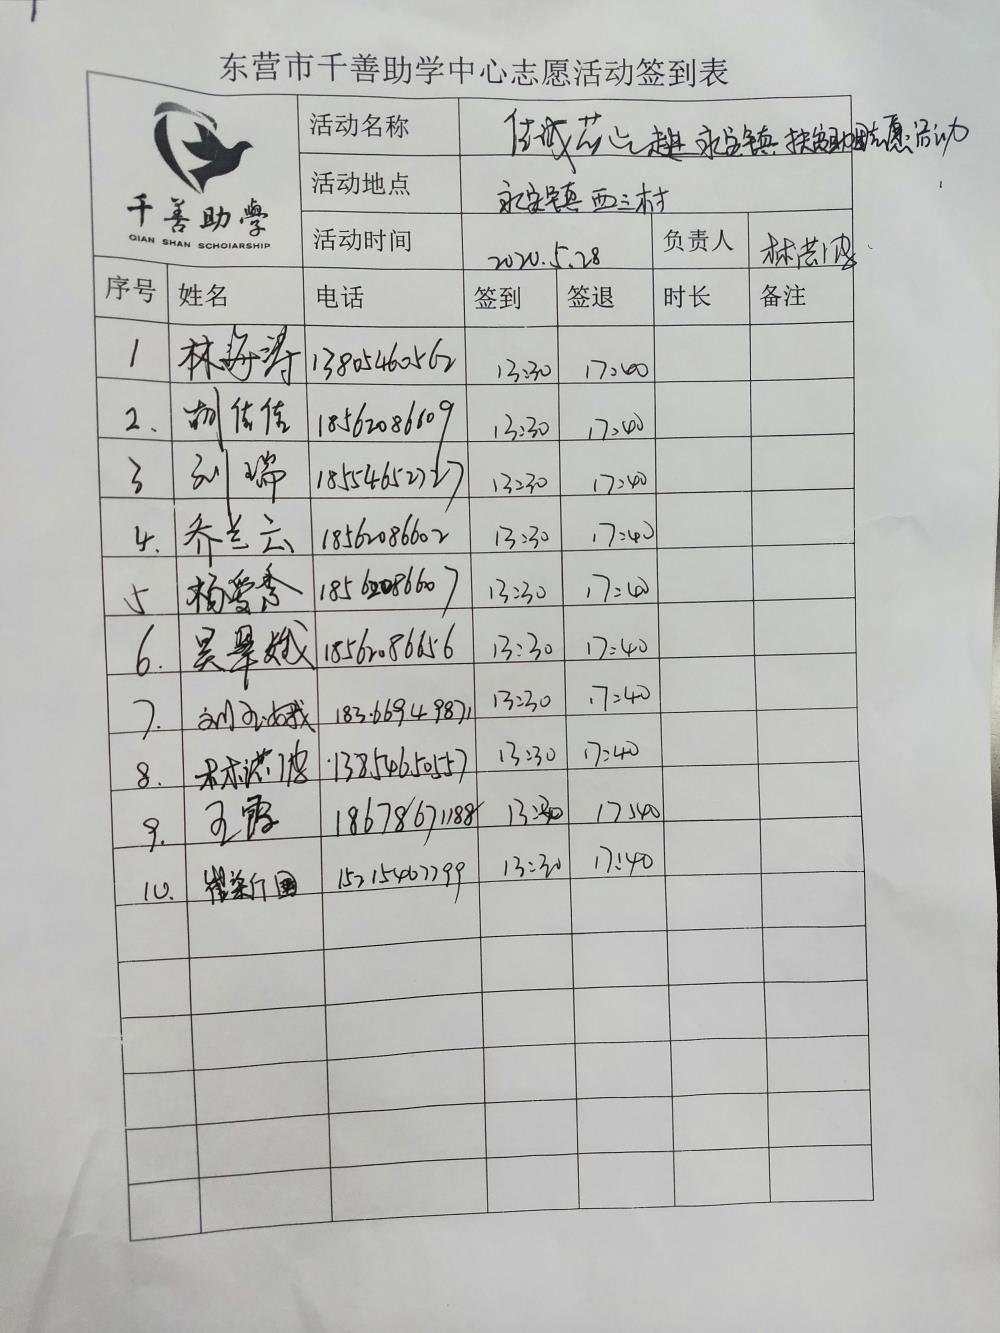 东营市千善助学中心志愿活动签到表
千善助學
QIAN SHAN SCHOIARSHIP
活动名称 赴永安镇扶贫助困志愿活动
活动地点 永安镇西三村
活动时间 2020.5.28 负责人 林洪波
序号 姓名 电话 签到 签退 时长 备注
1 林海涛 13805460562 13:30 17:40
2. 胡佳佳 18562086609 13:30 17:40
3 刘瑞 18554652727 13:30 17:40
4. 乔兰云 18562086602 13:30 17:40
5 杨爱秀 18562086607 13:30 17:40
6. 吴翠娥 18562086656 13:30 17:40
7. 刘玉娥 18366949871 13:30 17:40
8. 林洪波 13854650557 13:30 17:40
9. 王霞 18678671188 13:30 17:40
10. 崔新国 15215407799 13:30 17:40